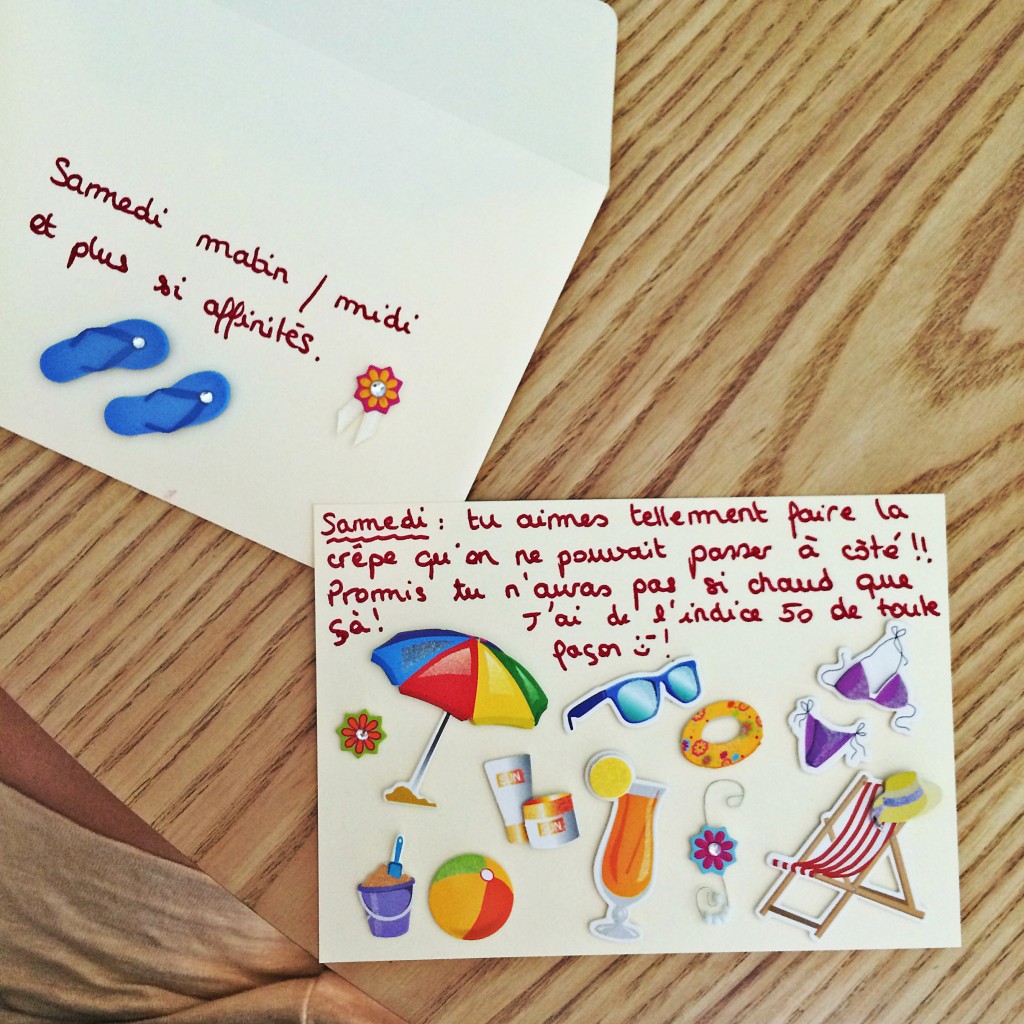 Samedi matin / midi
et plus si affinités.
Samedi : tu aimes tellement faire la
crêpe qu'on ne pouvait passer à côté !!
Promis tu n'auras pas si chaud que
çà ! J'ai de l'indice 50 de toute
façon :-) !
SUN
SUN